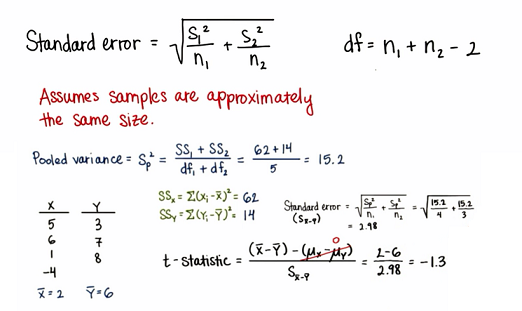 Standard error = √(S₁²/n₁ + S₂²/n₂)
df = n₁ + n₂ − 2
Assumes samples are approximately
the same size.
Pooled variance = Sₚ² = (SS₁ + SS₂)/(df₁ + df₂) = (62 + 14)/5 = 15.2
SSₓ = Σ(xᵢ−x̄)² = 62
SSᵧ = Σ(Yᵢ−Ȳ)² = 14
Standard error = √(Sₚ²/n₁ + Sₚ²/n₂) = √(15.2/4 + 15.2/3)
(S_x̄−ȳ)
= 2.98
X Y
5 3
6 7
1 8
−4
x̄ = 2 Ȳ = 6
0
t-statistic = ((x̄−Ȳ) − (μₓ − μᵧ))/S_x̄−ȳ = (2−6)/2.98 = −1.3